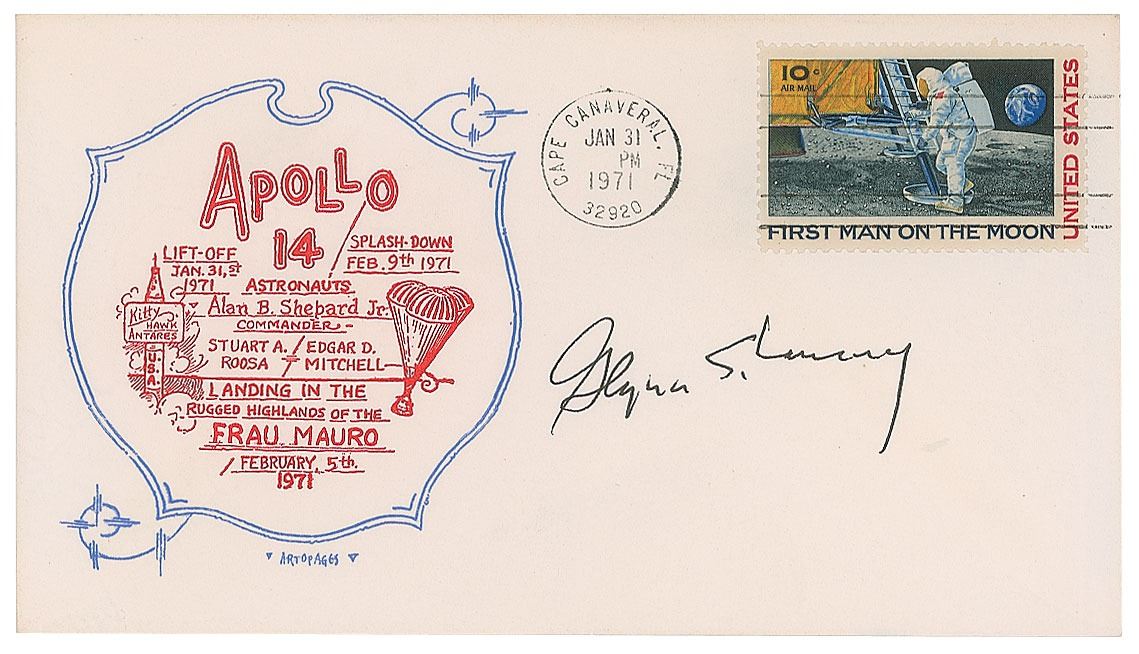 APOLLO
14
LIFT-OFF
JAN. 31,st
1971
SPLASH-DOWN
FEB. 9th 1971
ASTRONAUTS
Alan B. Shepard Jr.
COMMANDER-
Kitty
HAWK
ANTARES
U.S.A.
STUART A. / EDGAR D.
ROOSA MITCHELL
LANDING IN THE
RUGGED HIGHLANDS OF THE
FRAU MAURO
FEBRUARY, 5th.
1971
ARTOPAGES
CAPE CANAVERAL, FL
JAN 31
PM
1971
32920
10c
AIR MAIL
UNITED STATES
FIRST MAN ON THE MOON
Glynn S. Lunney